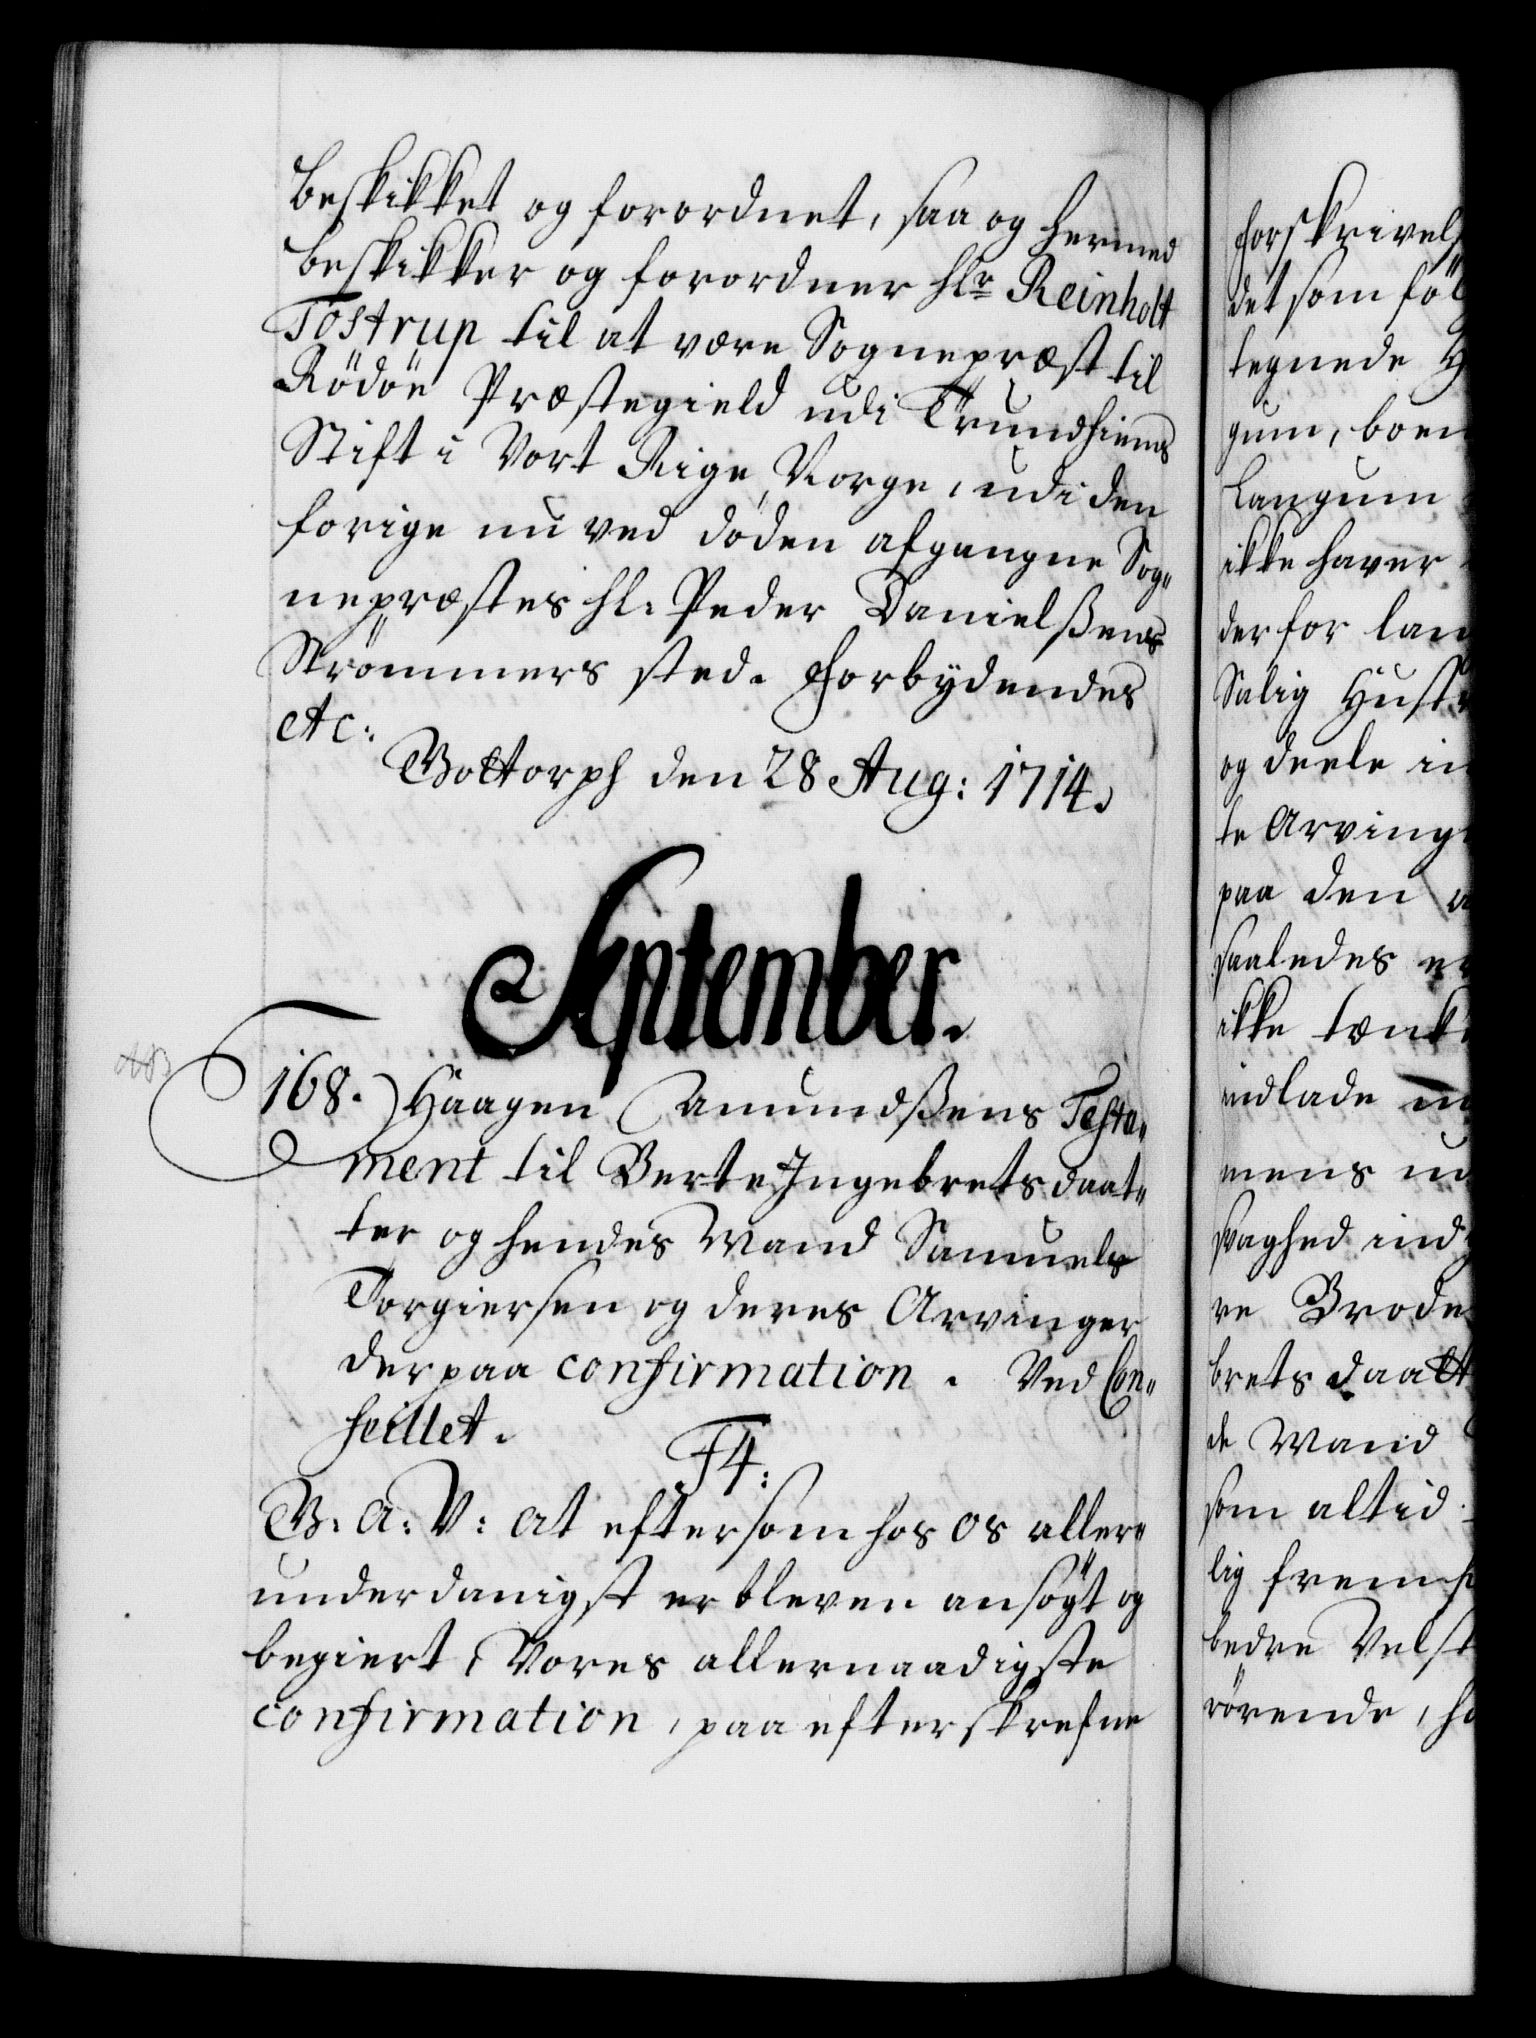 beskikket og forordnet, saa og hermed
beskikker og forordner hlr Reinholt
Tostrup til at være Sognepræst til
Rödöe Præstegield udi Trundhiems
Stift i Vort Rige Norge, udi den
forige nu ved döden afgangne Sog„
nepræstes hl. Peder Danielßens
Strömmers sted. Forbydendes
etc:
Gottorph den 28 Aug: 1714.
September.
168. Haagen Amundßens Testa„
ment til Berte Ingebretsdaat„
ter og hendes Mand Samuels
Torgiersen og deres Arvinger
derpaa confirmation. Ved Con„
seillet.
F4:
G. A: V: at eftersom hos os aller„
underdanigst er bleven ansögt og
begiert, Vores allernaadigste
confirmation, paa efterskrefne
forskrivels
det som föl
tegnede H
gum, boen
Langum
ikke haver
der for lan
Salig Hustr
og deele in
te Arving
paa den
saaledes er
ikke tænk
indlade
mens ud
svaghed ind
re Brode
brets daatt
de Mand
som altid
lig frem
bedre Velst
rörende, ha